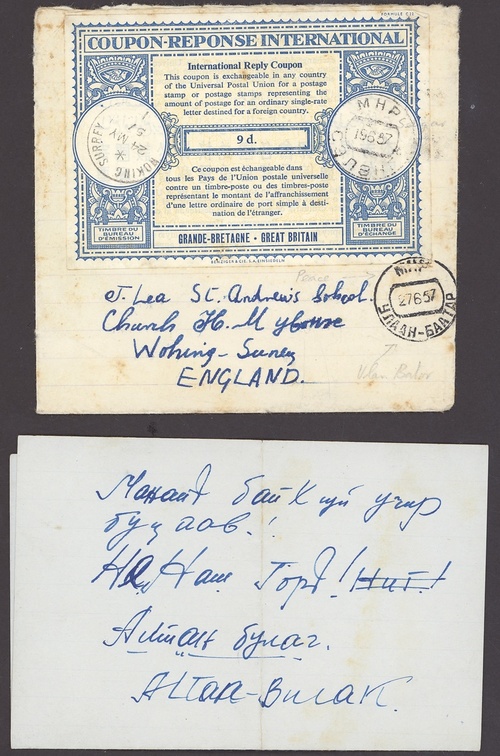 FORMULE C22
COUPON-REPONSE INTERNATIONAL
International Reply Coupon
This coupon is exchangeable in any country
of the Universal Postal Union for a postage
stamp or postage stamps representing the
amount of postage for an ordinary single-rate
letter destined for a foreign country.
9 d.
Ce coupon est échangeable dans
tous les Pays de l'Union postale universelle
contre un timbre-poste ou des timbres-poste
représentant le montant de l'affranchissement
d'une lettre ordinaire de port simple à desti-
nation de l'étranger.
TIMBRE DU
BUREAU
D'ÉMISSION
GRANDE-BRETAGNE • GREAT BRITAIN
TIMBRE DU
BUREAU
D'ÉCHANGE
BENZIGER & CIE. S.A. EINSIEDELN
WOKING SURREY
24 MY
57
МНР
19 6 57
Peace
J. Lea St. Andrew's School.
Church H.
Woking - Surrey
ENGLAND.
МНР
27 6 57
УЛААН-БААТАР
Ulan Bator
Манайд байхгүй учир
буцаав.!
Наш Горд! Нит.!
Алтан булаг.
Altan-Bulak.